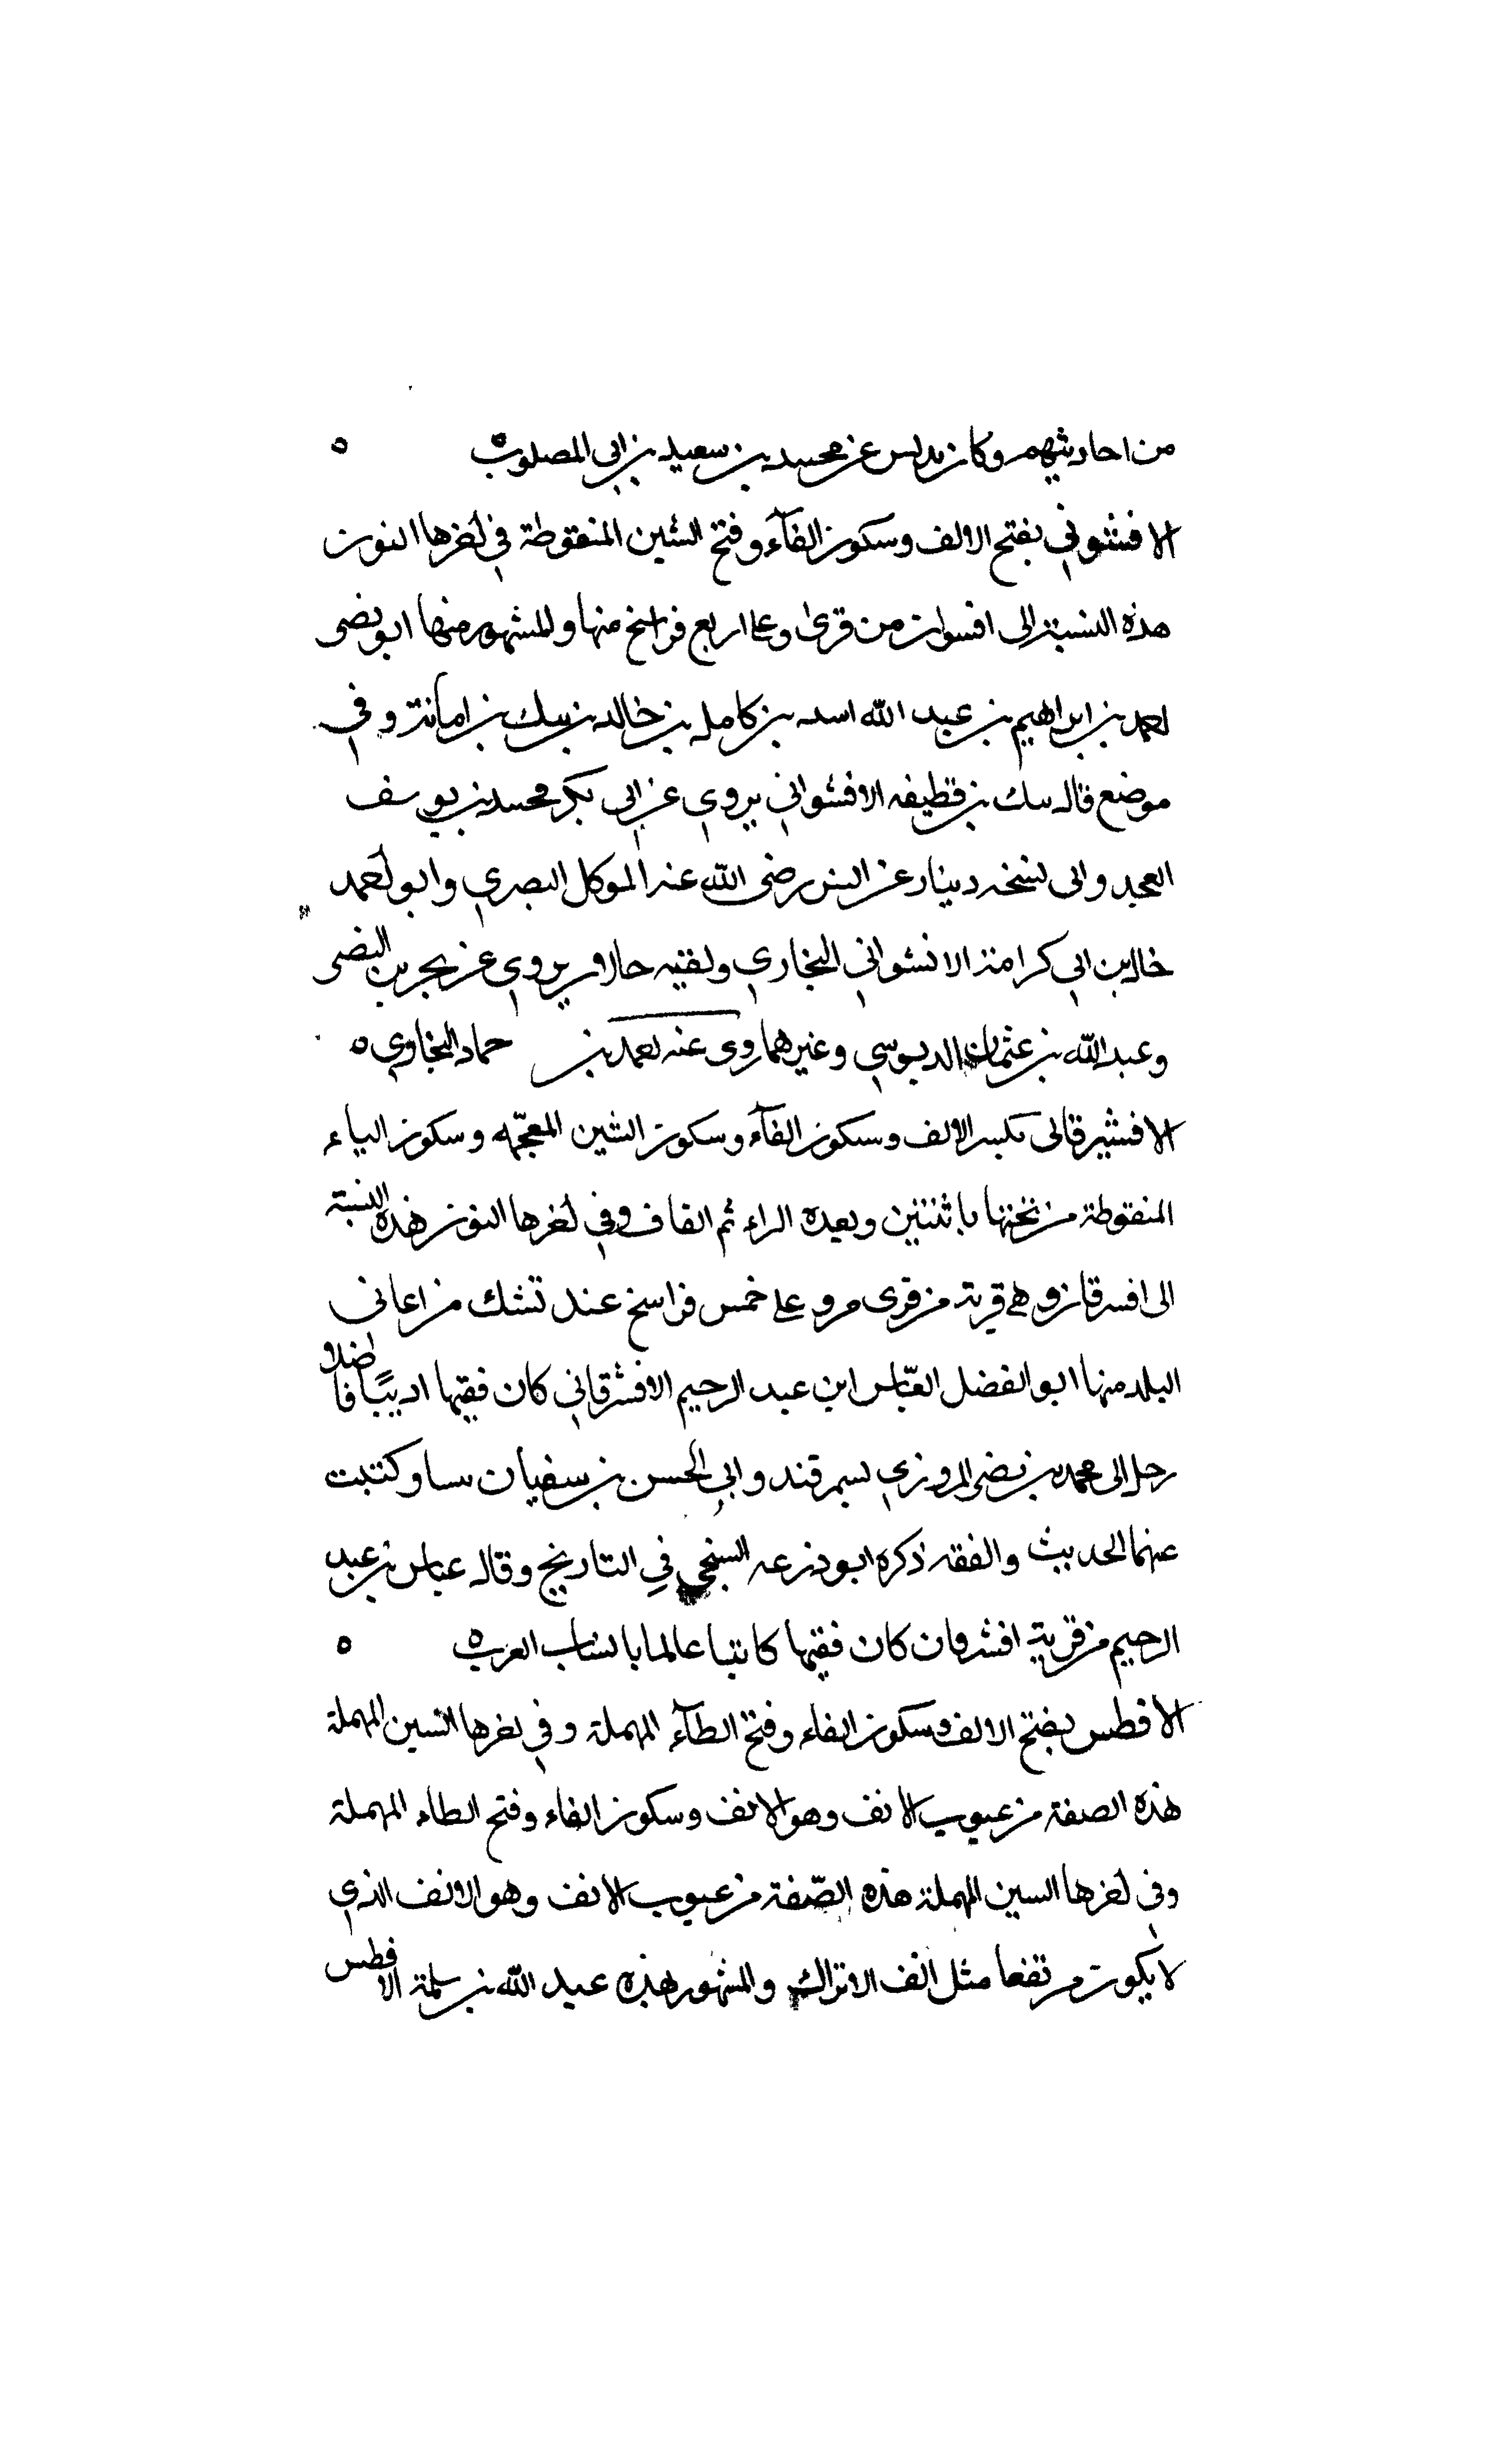 من احاديثهم وكان يدلس عن محمد بن سعيد بن ابي المصلوب ه
الافشواني بفتح الالف وسكون الفآء وفتح الشين المنقوطة في اخرها النون
هذه النسبة الى افسوان من قرى وعلى اربع فراسخ منها والمشهور منها ابو نصر
احمد بن ابراهيم بن عبد الله اسد بن كامل بن خالد بن بيك بن امانة وفي
موضع قال بن قطيفه الافشواني يروي عن ابي بكر محمد بن يوسف
والى نسخه دينار عن انس رضى الله عنه الموكل البصري وابو احمد
خالد بن ابي كرامة الافشواني البخاري ولقبه يروي عن بجير بن النضر
وعبد الله بن عثمان الدبوسي وغيرهما روى عنه احمد بن حماد البخاري ه
الافشيرقانى بكسر الالف وسكون الفآء وسكون الشين المعجمه وسكون الياء
المنقوطة من تحتها باثنتين وبعده الراء ثم القاف وفي اخرها النون هذه النسبة
الى افسرقان وهي قرية من قرى مرو على خمس فراسخ عند تشك من اعانى
البلد منها ابو الفضل العبّاس ابن عبد الرحيم الافشرقاني كان فقيها اديبًا فاضلا
رحل الى محمد بن نصر المروزي بسمرقند وابي الحسن بن سفيان بنسا وكتبت
عنهما الحديث والفقه ذكره ابو زرعه السنجي في التاريخ وقال عباس بن عبد
الرحيم من قرية افشرقان كان فقيها كاتبا عالما بانساب العرب ه
الافطس بفتح الالف وسكون الفاء وفتح الطآء المهملة وفي اخرها السين المهملة
هذه الصفة من عيوب الانف وهو الانف وسكون الفاء وفتح الطاء المهملة
وفي اخرها السين المهملة هذه الصّفة من عيوب الانف وهو الانف الذي
لا يكون مرتفعا مثل انف الاتراك والمشهور بهذه عبد الله بن سلمة الافطس